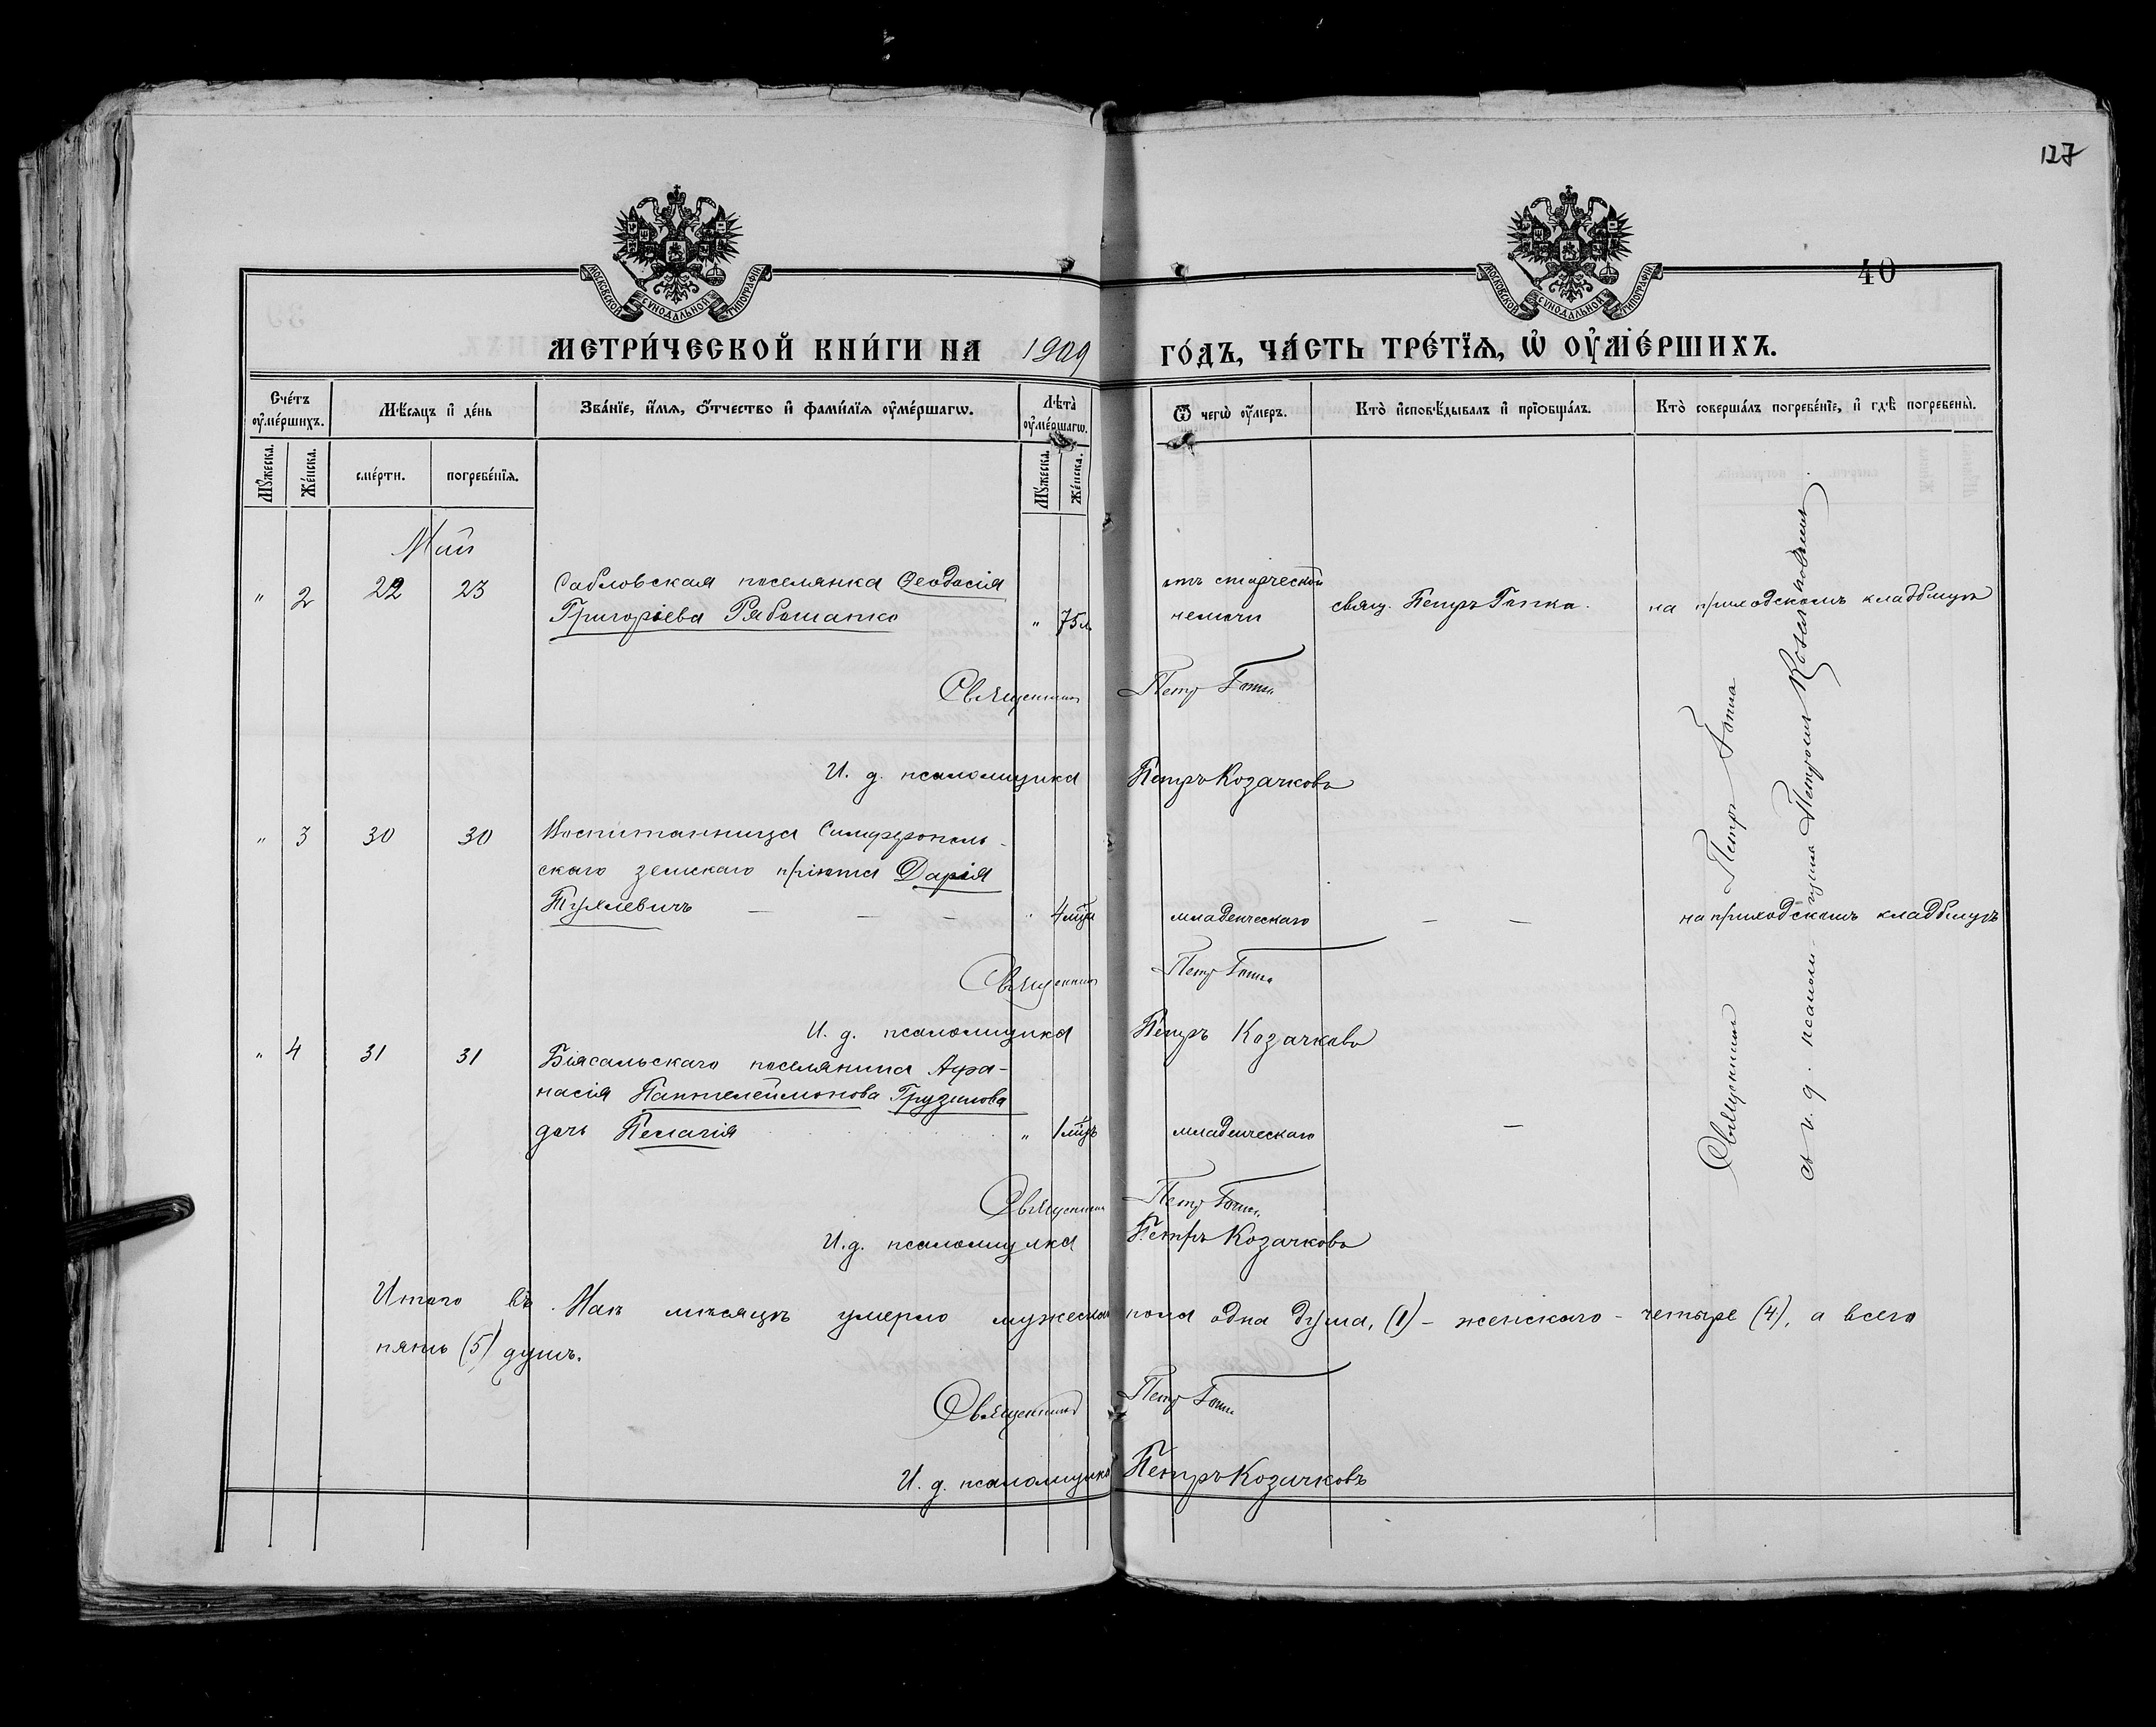 127
МОСКОВСКОЙ СУНОДАЛЬНОЙ ТИПОГРАФІИ
МОСКОВСКОЙ СУНОДАЛЬНОЙ ТИПОГРАФІИ
40
МЕТРИ́ЧЕСКОЙ КНИ́ГИ НА 1909 ГО́ДЪ, ЧА́СТЬ ТРЕ́ТЇѦ, Ѡ҆ ОУ҆МЕ́РШИХЪ.
Сче́тъ оу҆ме́ршихъ.
Мѣ́сяцъ и҆ де́нь
Зва́нїе, и҆́мѧ, ѻ҆́тчество и҆ фами́лїѧ оу҆ме́ршагѡ.
Лѣта̀ оу҆ме́ршагѡ.
Ѿ чегѡ̀ оу҆́меръ.
Кто̀ и҆сповѣ́дывалъ и҆ прїѡбща́лъ.
Кто̀ соверша́лъ погребе́нїе, и҆ гдѣ̀ погребены̀.
Мꙋ́жеска.
Же́нска.
сме́рти.
погребе́нїѧ.
Мꙋ́жеска.
Же́нска.
Май
" 2 22 23 Сабловская поселянка Ѳеодосія
Григоріева Рябошапко " 75 л.
отъ старческой
немочи
свящ. Петръ Гапка.
на приходскомъ кладбищѣ
Священникъ Петръ Гапка
И. д. псаломщика Петръ Козачковъ
" 3 30 30 Воспитанница Симферополь-
скаго земскаго пріюта Дарія
Тухлевичъ — — — " 4 мца младенческаго — — на приходскомъ кладбищѣ
Священникъ Петръ Гапка
И. д. псаломщика Петръ Козачковъ
" 4 31 31 Біясальскаго поселянина Аѳа-
насія Пантелеймонова Грузинова
дочь Пелагія " 1 мцъ младенческаго —
Священникъ Петръ Гапка
съ и. д. псаломщика Петромъ Козачковымъ
Священникъ Петръ Гапка
И. д. псаломщика Петръ Козачковъ
Итого въ Маѣ мѣсяцѣ умерло мужеска пола одна душа, (1) – женскаго – четыре (4), а всего
пять (5) душъ.
Священникъ Петръ Гапка
И. д. псаломщика Петръ Козачковъ